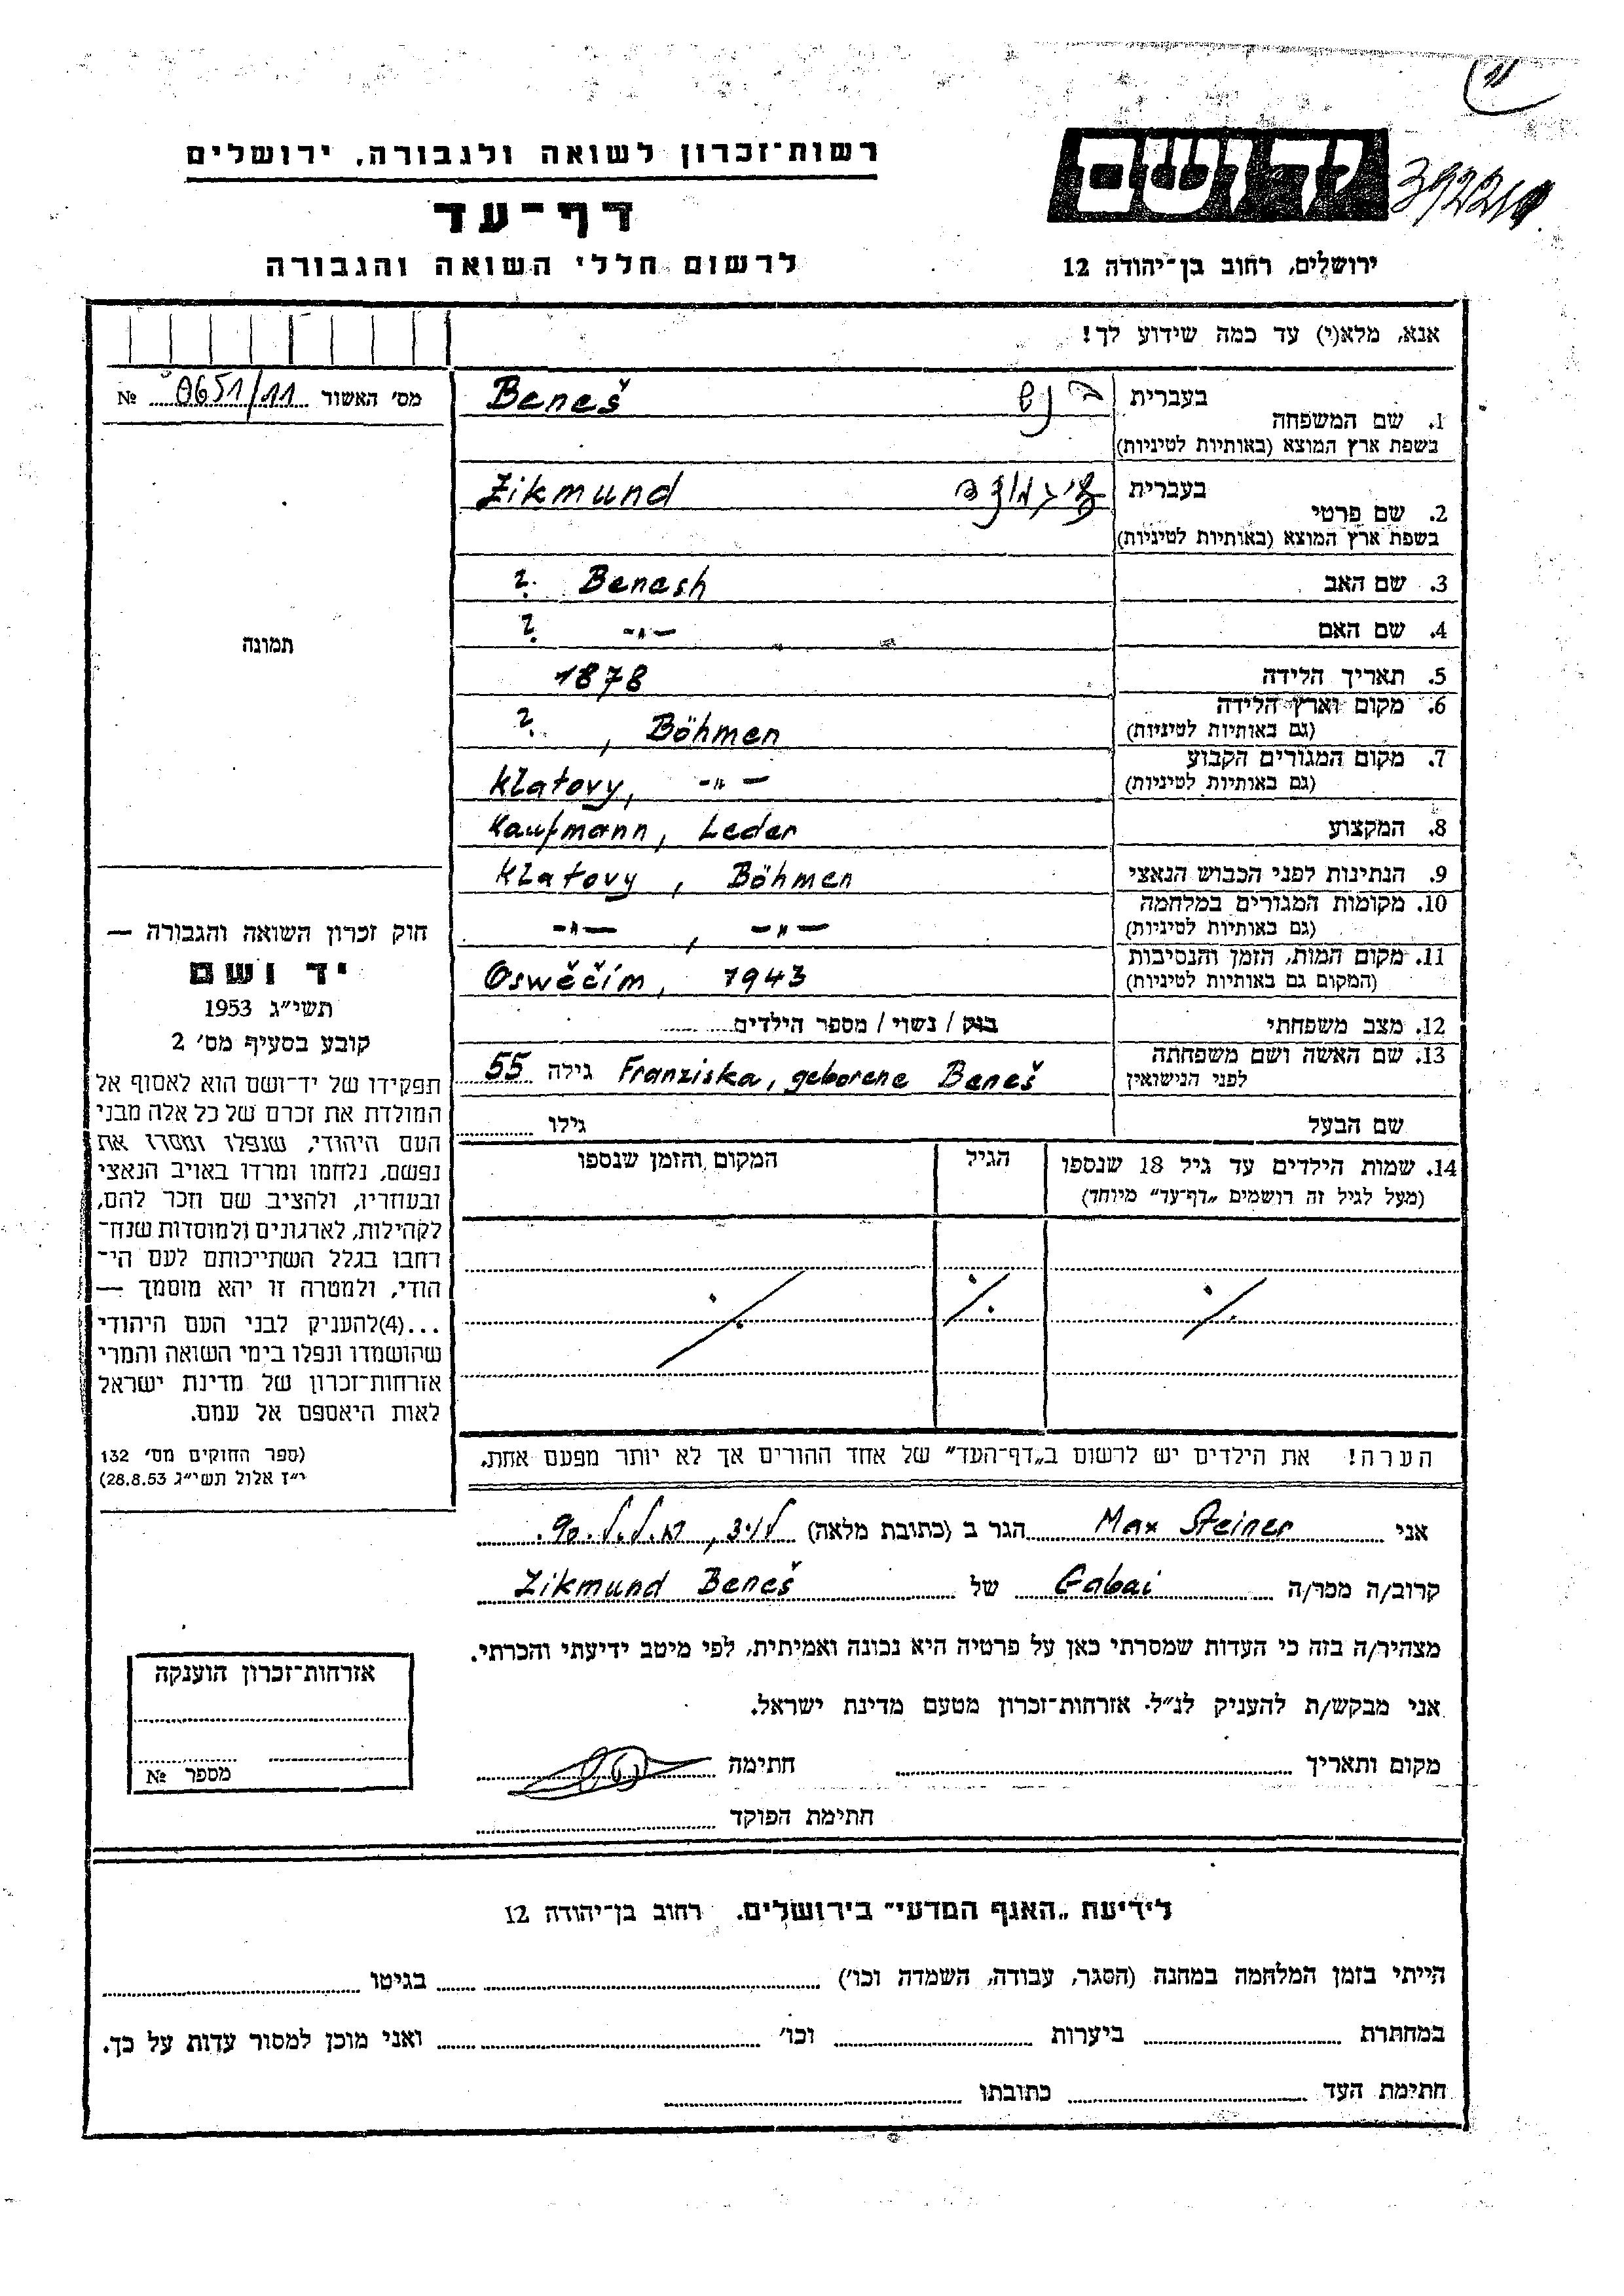 רשות־זכרון לשואה ולגבורה, ירושלים
דף־עד
לרשום חללי השואה והגבורה
ידושם
ירושלים, רחוב בן־יהודה 12
אנא, מלא(י) עד כמה שידוע לך!
מס׳ האשור 0651/11 №
1. שם המשפחה
בעברית בנש
בשפת ארץ המוצא (באותיות לטיניות) Beneš
2. שם פרטי
בעברית
בשפת ארץ המוצא (באותיות לטיניות) Zikmund
3. שם האב Benesh ?
4. שם האם -"- ?
5. תאריך הלידה 1878
6. מקום וארץ הלידה
(גם באותיות לטיניות) ? , Böhmen
7. מקום המגורים הקבוע
(גם באותיות לטיניות) Klatovy, -"-
8. המקצוע Kaufmann, Leder
9. הנתינות לפני הכבוש הנאצי Klatovy, Böhmen
10. מקומות המגורים במלחמה
(גם באותיות לטיניות) -"- , -"-
11. מקום המות, הזמן והנסיבות
(המקום גם באותיות לטיניות) Oswěčim, 1943
12. מצב משפחתי רווק / נשוי / מספר הילדים
13. שם האשה ושם משפחתה
לפני הנישואין Franziska, geborene Beneš גילה 55
שם הבעל גילו
14. שמות הילדים עד גיל 18 שנספו הגיל המקום והזמן שנספו
(מעל לגיל זה רושמים „דף־עד" מיוחד)
./. ./. ./.
הערה! את הילדים יש לרשום ב„דף־העד" של אחד ההורים אך לא יותר מפעם אחת.
תמונה
חוק זכרון השואה והגבורה —
יד ושם
תשי״ג 1953
קובע בסעיף מס׳ 2
תפקידו של יד־ושם הוא לאסוף אל
המולדת את זכרם של כל אלה מבני
העם היהודי, שנפלו ומסרו את
נפשם, נלחמו ומרדו באויב הנאצי
ובעוזריו, ולהציב שם וזכר להם,
לקהילות, לארגונים ולמוסדות שנח־
רבו בגלל השתייכותם לעם הי־
הודי, ולמטרה זו יהא מוסמך —
...(4)להעניק לבני העם היהודי
שהושמדו ונפלו בימי השואה והמרי
אזרחות־זכרון של מדינת ישראל
לאות היאספם אל עמם.
(ספר החוקים מס׳ 132
י״ז אלול תשי״ג 28.8.53)
אני Max Steiner הגר ב (כתובת מלאה)
קרוב/ה מכר/ה Gabai של Zikmund Beneš
מצהיר/ה בזה כי העדות שמסרתי כאן על פרטיה היא נכונה ואמיתית, לפי מיטב ידיעתי והכרתי.
אני מבקש/ת להעניק לנ״ל אזרחות־זכרון מטעם מדינת ישראל.
מקום ותאריך חתימה
חתימת הפוקד
אזרחות־זכרון הוענקה
מספר №
לידיעת „האגף המדעי" בירושלים. רחוב בן־יהודה 12
הייתי בזמן המלחמה במחנה (הסגר, עבודה, השמדה וכו׳) בגיטו
במחתרת ביערות וכו׳ ואני מוכן למסור עדות על כך.
חתימת העד כתובתו